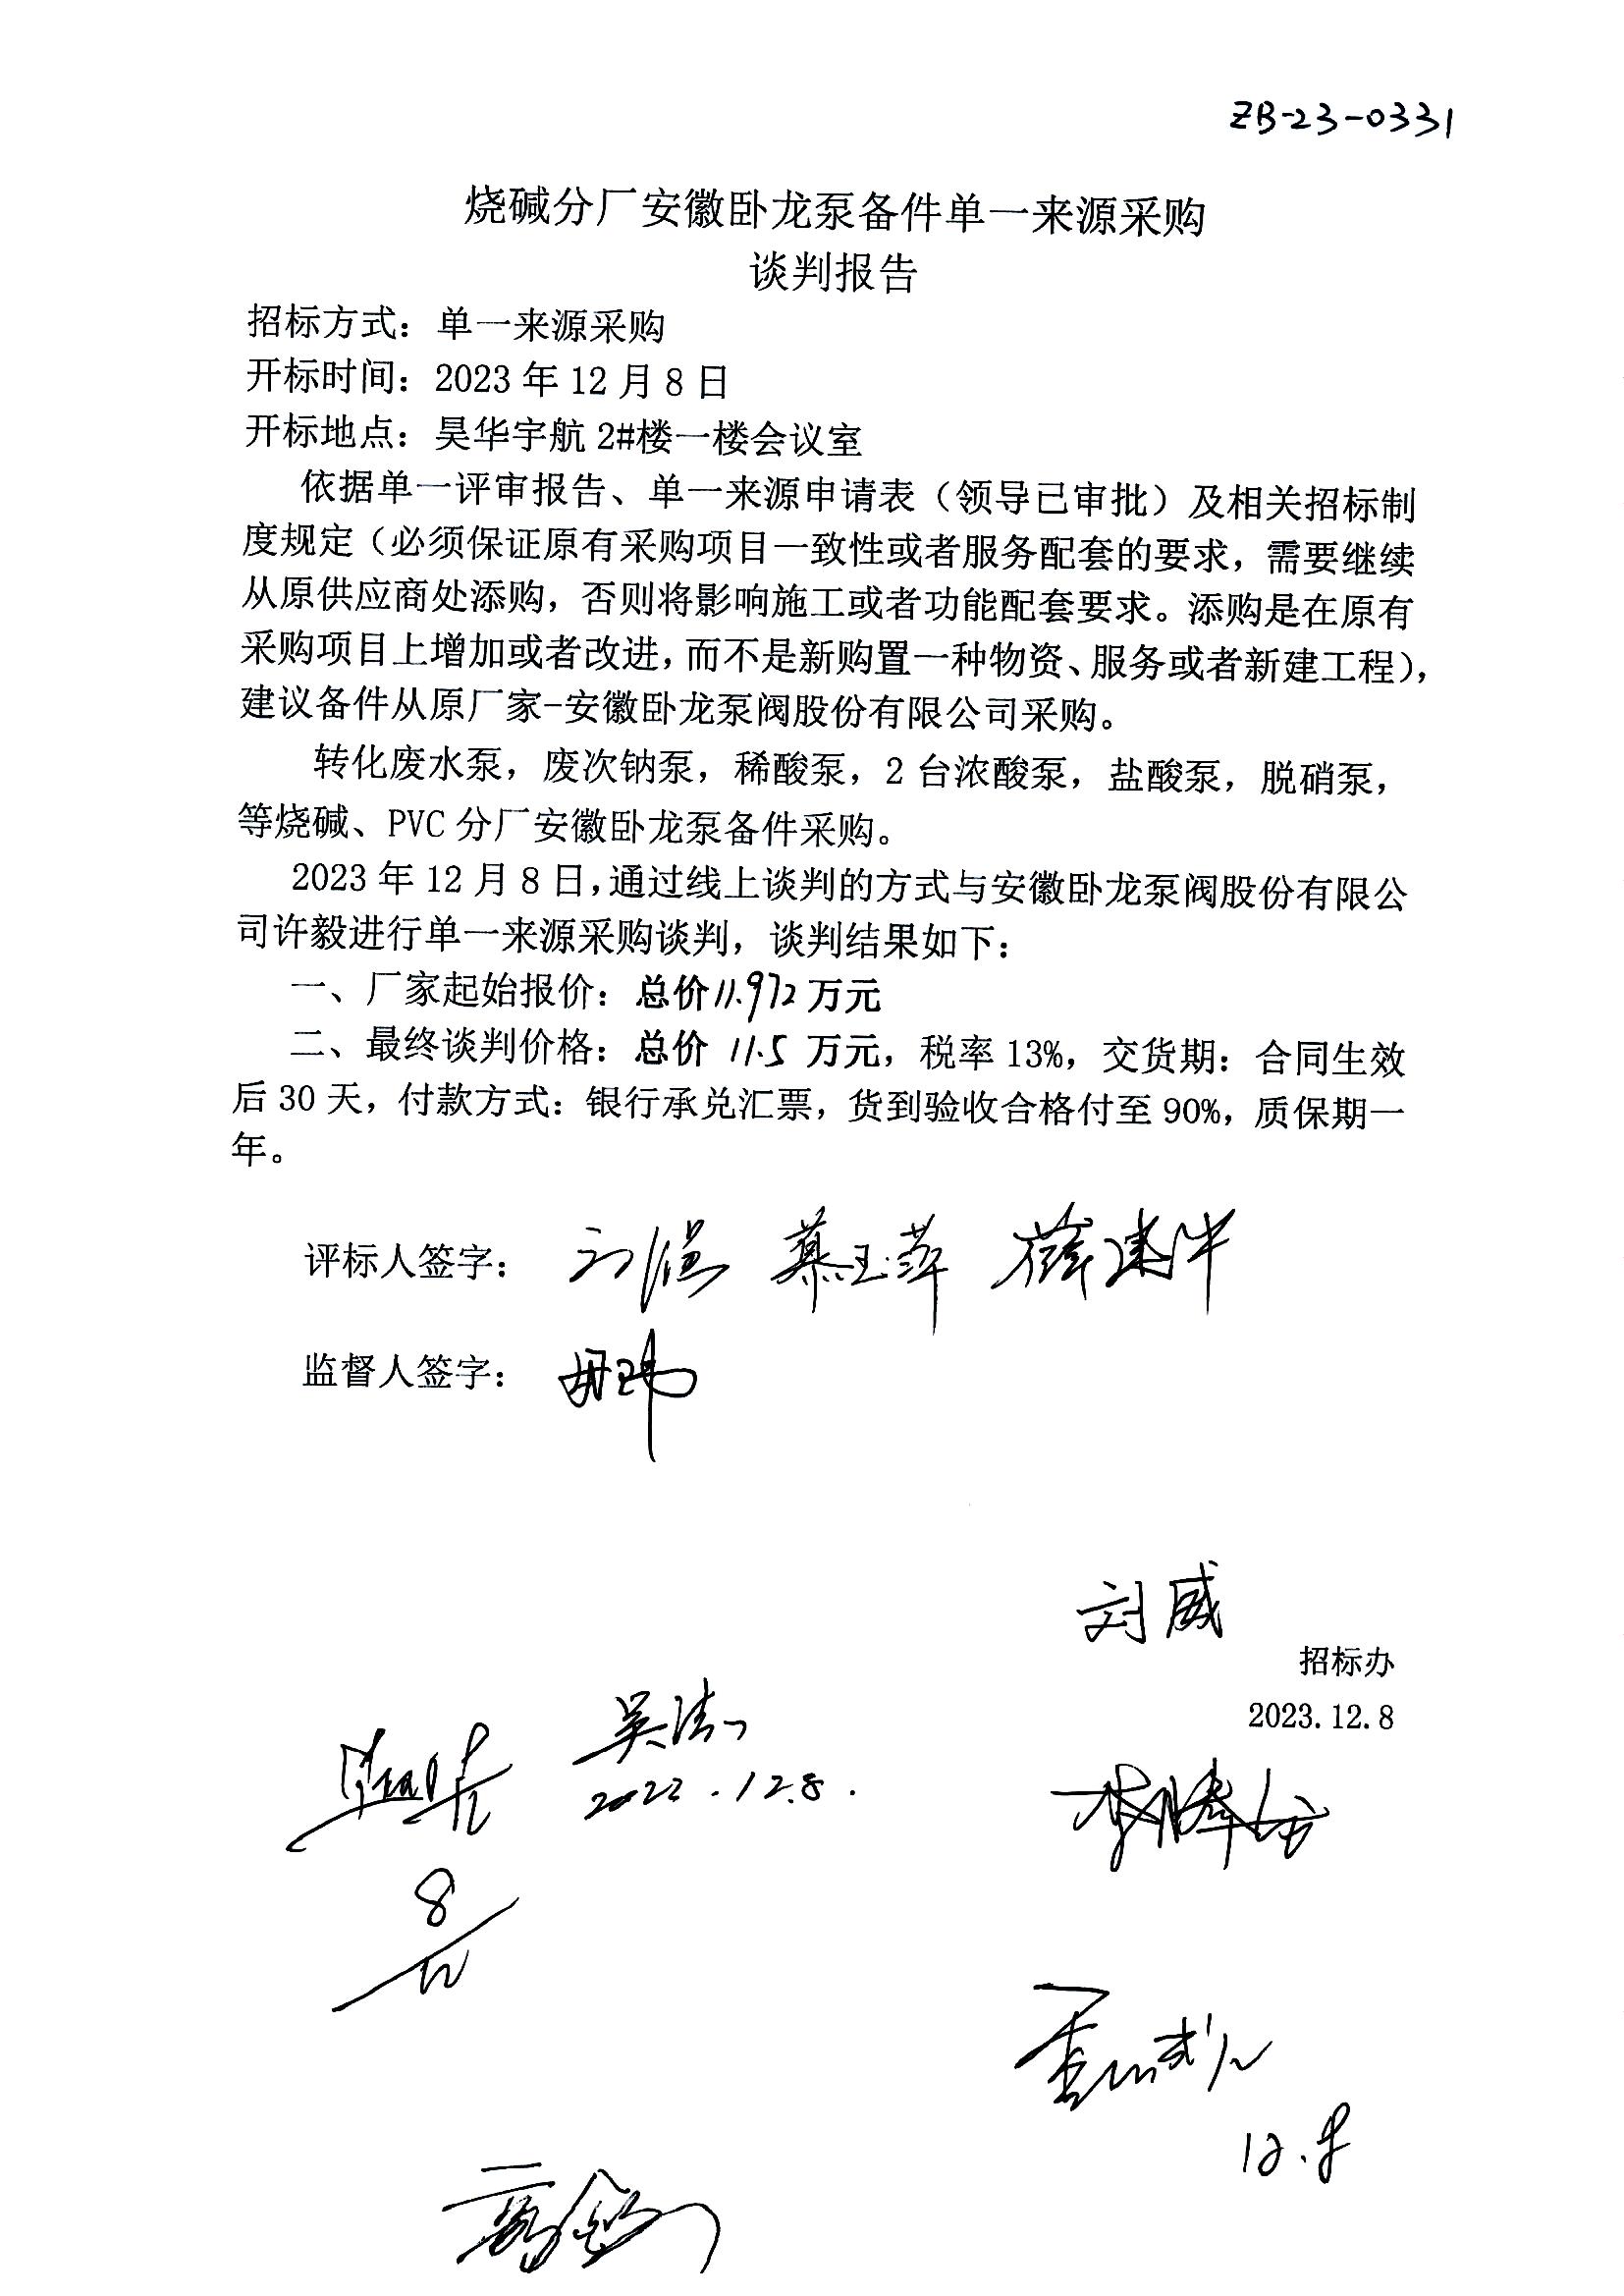 ZB-23-0331
烧碱分厂安徽卧龙泵备件单一来源采购
谈判报告
招标方式：单一来源采购
开标时间：2023年12月8日
开标地点：昊华宇航2#楼一楼会议室
依据单一评审报告、单一来源申请表（领导已审批）及相关招标制
度规定（必须保证原有采购项目一致性或者服务配套的要求，需要继续
从原供应商处添购，否则将影响施工或者功能配套要求。添购是在原有
采购项目上增加或者改进，而不是新购置一种物资、服务或者新建工程），
建议备件从原厂家-安徽卧龙泵阀股份有限公司采购。
转化废水泵，废次钠泵，稀酸泵，2台浓酸泵，盐酸泵，脱硝泵，
等烧碱、PVC分厂安徽卧龙泵备件采购。
2023年12月8日，通过线上谈判的方式与安徽卧龙泵阀股份有限公
司许毅进行单一来源采购谈判，谈判结果如下：
一、厂家起始报价：总价11.972万元
二、最终谈判价格：总价 11.5 万元，税率13%，交货期：合同生效
后30天，付款方式：银行承兑汇票，货到验收合格付至90%，质保期一
年。
评标人签字：
监督人签字：
刘威
招标办
2023.12.8
12.8